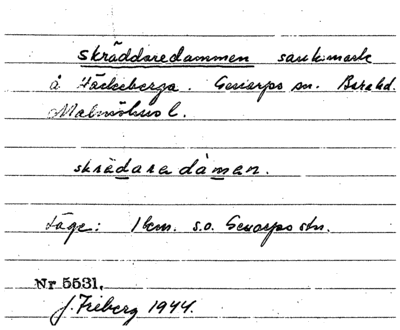 skräddaredammen sankmark
å Häckeberga. Genarps sn. Bara hd.
Malmöhus l.
skrädara dåman.
Läge: 1 km. s.o. Genarps stn.
Nr 5531.
J. Friberg 1944.